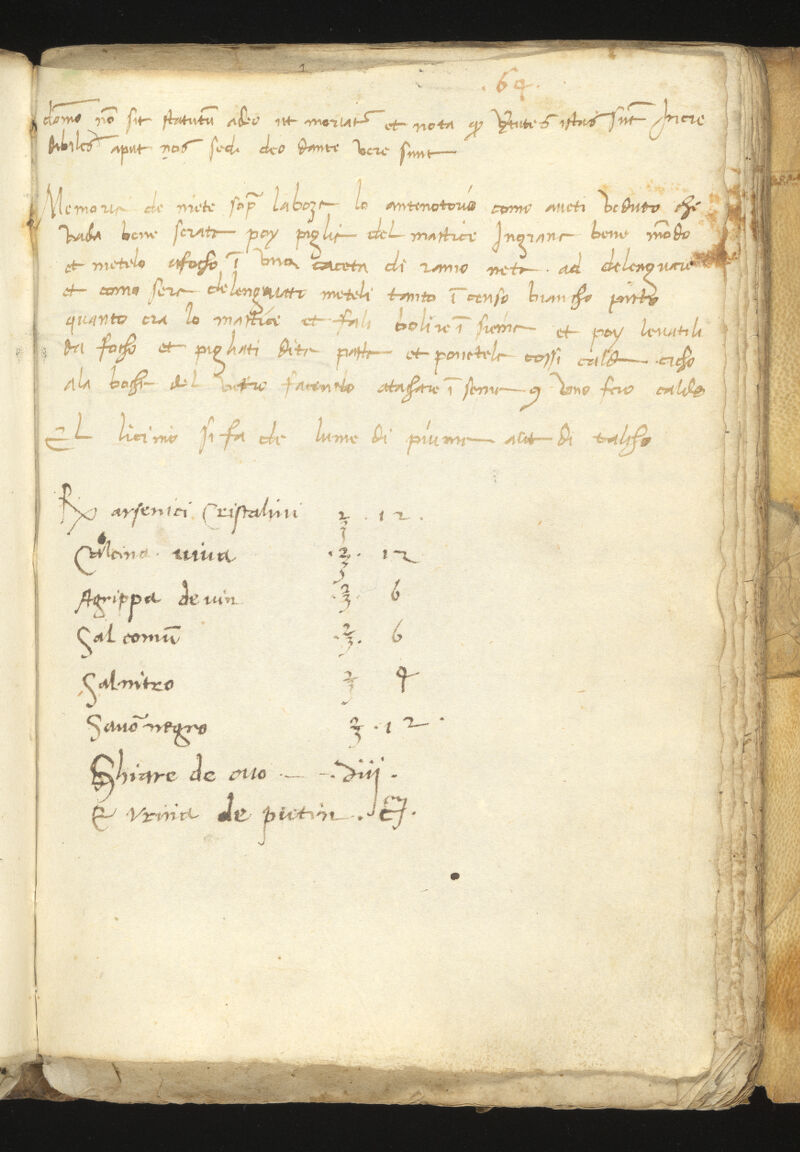 . 64 .
domo no sit statutu adeo ut moriat et nota istis sut Incre
dibiles aput nos sed deo dante vere sunt
Memoria de mete sop la boza lo como aveti veduto che
vada bene serata poy piglia del mastice In grana bene modo
et metelo a focho i una caceta di ramo neta ad delenguare
et como sera delenguato meteli tanto i censo biancho pisto
quanto era lo mastice et fali bolire i sieme et poy levatili
da focho et pigliati dita pasta et ponetela cossi calda
ala bocha del vetro facendo atachare i seme 9 uno fero caldo
El licinio si fa de lume di piuma aut di talcho
Rx arsenici Cristalini ʒ . 12 .
Calcina viva . ʒ . 12
Agrippa de vin . ʒ 6
Sal comu . ʒ . 6
Salnitro ʒ 4
Savo negro ʒ . 12 .
Shiare de ovo . — . iiij .
& vrina de putin .